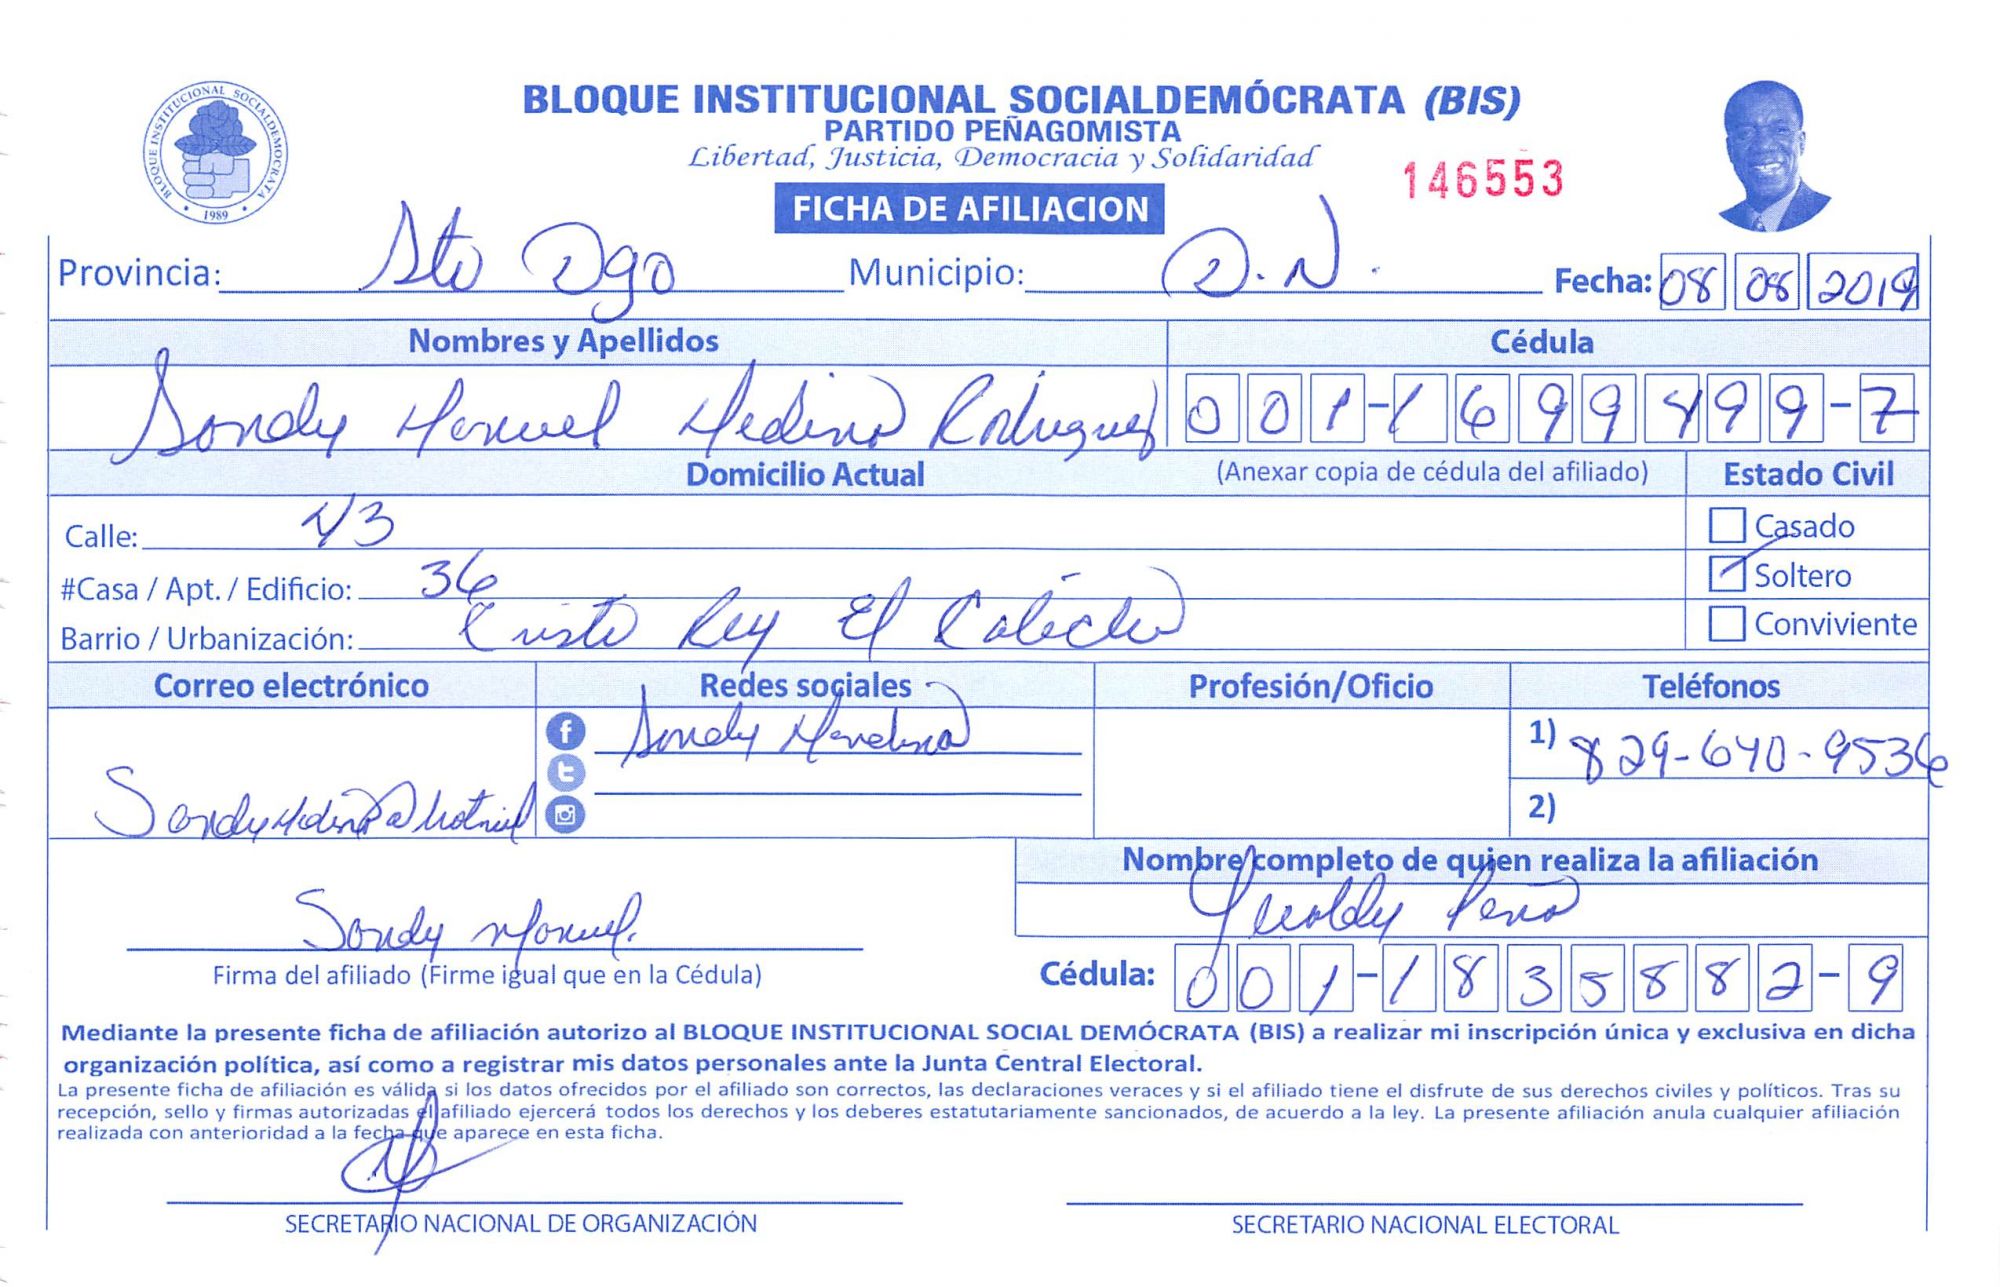 BLOQUE INSTITUCIONAL SOCIALDEMÓCRATA (BIS)
PARTIDO PEÑAGOMISTA
Libertad, Justicia, Democracia y Solidaridad
146553
BLOQUE INSTITUCIONAL SOCIALDEMOCRATA
1989
FICHA DE AFILIACION
Provincia: Sto Dgo Municipio: D.N. Fecha: 08 08 2019
Nombres y Apellidos Cédula
Sondy Manuel Medina Rodriguez 001-1699499-7
Domicilio Actual (Anexar copia de cédula del afiliado) Estado Civil
Calle: 43 Casado
#Casa / Apt. / Edificio: 36 Soltero
Barrio / Urbanización: Cristo Rey El Conviviente
Correo electrónico Redes sociales Profesión/Oficio Teléfonos
Sondy 1) 829-640-9536
2)
Nombre completo de quien realiza la afiliación
Peña
Sondy Manuel
Firma del afiliado (Firme igual que en la Cédula) Cédula: 001-1835882-9
Mediante la presente ficha de afiliación autorizo al BLOQUE INSTITUCIONAL SOCIAL DEMÓCRATA (BIS) a realizar mi inscripción única y exclusiva en dicha
organización política, así como a registrar mis datos personales ante la Junta Central Electoral.
La presente ficha de afiliación es válida si los datos ofrecidos por el afiliado son correctos, las declaraciones veraces y si el afiliado tiene el disfrute de sus derechos civiles y políticos. Tras su
recepción, sello y firmas autorizadas el afiliado ejercerá todos los derechos y los deberes estatutariamente sancionados, de acuerdo a la ley. La presente afiliación anula cualquier afiliación
realizada con anterioridad a la fecha que aparece en esta ficha.
SECRETARIO NACIONAL DE ORGANIZACIÓN SECRETARIO NACIONAL ELECTORAL